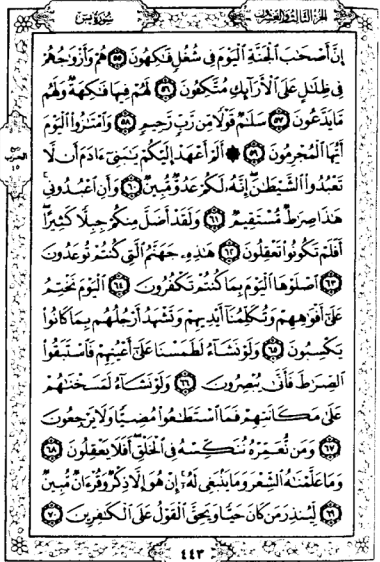 سُورَةُ يسٓ
الجُزْءُ الثَّالِثُ وَالعِشْرُونَ
إِنَّ أَصْحَٰبَ ٱلْجَنَّةِ ٱلْيَوْمَ فِى شُغُلٍ فَٰكِهُونَ ٥٥ هُمْ وَأَزْوَٰجُهُمْ
فِى ظِلَٰلٍ عَلَى ٱلْأَرَآئِكِ مُتَّكِـُٔونَ ٥٦ لَهُمْ فِيهَا فَٰكِهَةٌ وَلَهُم
مَّا يَدَّعُونَ ٥٧ سَلَٰمٌ قَوْلًا مِّن رَّبٍّ رَّحِيمٍ ٥٨ وَٱمْتَٰزُوا۟ ٱلْيَوْمَ
أَيُّهَا ٱلْمُجْرِمُونَ ٥٩ ۞ أَلَمْ أَعْهَدْ إِلَيْكُمْ يَٰبَنِىٓ ءَادَمَ أَن لَّا
تَعْبُدُوا۟ ٱلشَّيْطَٰنَ ۖ إِنَّهُۥ لَكُمْ عَدُوٌّ مُّبِينٌ ٦٠ وَأَنِ ٱعْبُدُونِى ۚ
هَٰذَا صِرَٰطٌ مُّسْتَقِيمٌ ٦١ وَلَقَدْ أَضَلَّ مِنكُمْ جِبِلًّا كَثِيرًا ۖ
أَفَلَمْ تَكُونُوا۟ تَعْقِلُونَ ٦٢ هَٰذِهِۦ جَهَنَّمُ ٱلَّتِى كُنتُمْ تُوعَدُونَ
٦٣ ٱصْلَوْهَا ٱلْيَوْمَ بِمَا كُنتُمْ تَكْفُرُونَ ٦٤ ٱلْيَوْمَ نَخْتِمُ
عَلَىٰٓ أَفْوَٰهِهِمْ وَتُكَلِّمُنَآ أَيْدِيهِمْ وَتَشْهَدُ أَرْجُلُهُم بِمَا كَانُوا۟
يَكْسِبُونَ ٦٥ وَلَوْ نَشَآءُ لَطَمَسْنَا عَلَىٰٓ أَعْيُنِهِمْ فَٱسْتَبَقُوا۟
ٱلصِّرَٰطَ فَأَنَّىٰ يُبْصِرُونَ ٦٦ وَلَوْ نَشَآءُ لَمَسَخْنَٰهُمْ
عَلَىٰ مَكَانَتِهِمْ فَمَا ٱسْتَطَٰعُوا۟ مُضِيًّا وَلَا يَرْجِعُونَ
٦٧ وَمَن نُّعَمِّرْهُ نُنَكِّسْهُ فِى ٱلْخَلْقِ ۖ أَفَلَا يَعْقِلُونَ ٦٨
وَمَا عَلَّمْنَٰهُ ٱلشِّعْرَ وَمَا يَنۢبَغِى لَهُۥٓ ۚ إِنْ هُوَ إِلَّا ذِكْرٌ وَقُرْءَانٌ مُّبِينٌ
٦٩ لِّيُنذِرَ مَن كَانَ حَيًّا وَيَحِقَّ ٱلْقَوْلُ عَلَى ٱلْكَٰفِرِينَ ٧٠
٤٤٣